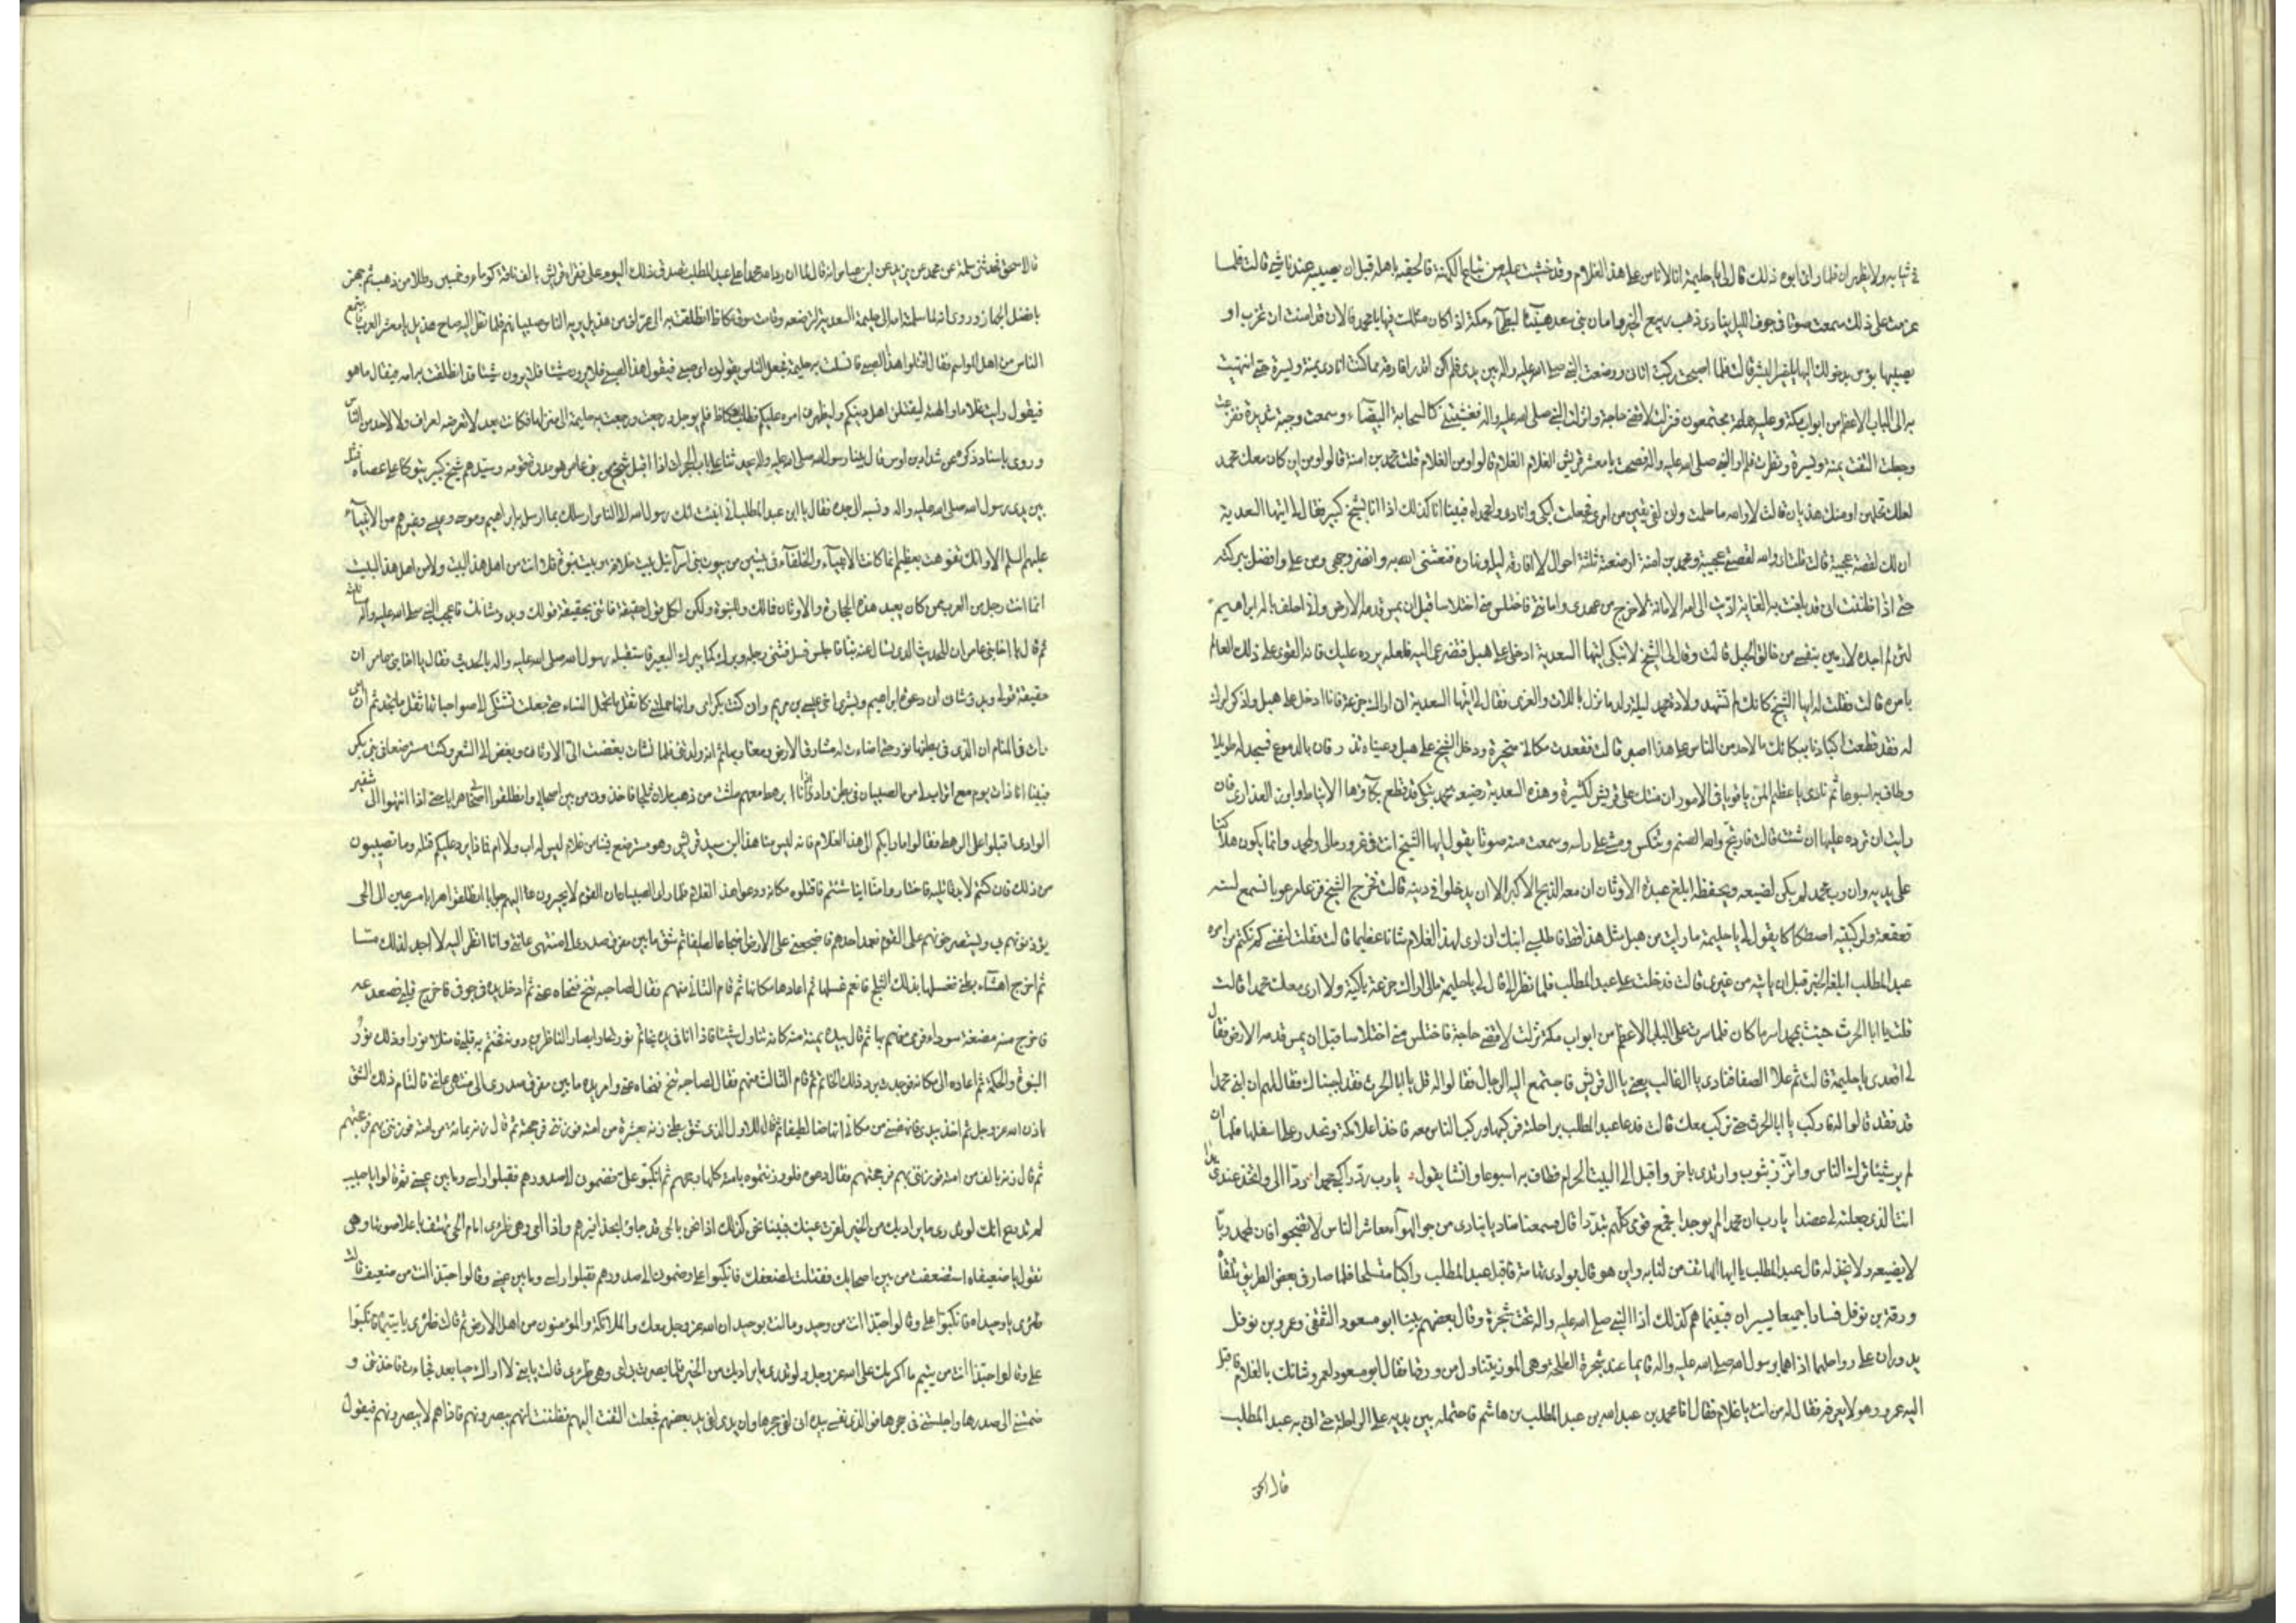 في ثيابه ولا يظهران فلما رأى ابوه ذلك قال لي يا حليمة انا لا نأمن على هذا الغلام وقد خشيت عليه من تباع الكهنة فالحقيه باهله قبل ان يصيبه عندنا شئ قالت فلما
عزمت على ذلك سمعت صوتا في جوف الليل ينادي ذهب ربيع الخير وامان بني سعد هنيئا لبطحاء مكة اذا كان مثلك فيها يا محمد فالان قد امنت ان تخرب او
يصيبها بؤس بدخولك اليها يا خير البشر قالت فلما اصبحت ركبت اتاني ووضعت النبي صلى الله عليه واله بين يدي فلم اكن اقدر افارقه مما كنت انادى يمنة ويسرة حتى انتهيت
به الى الباب الاعظم من ابواب مكة وعليه جماعة مجتمعون فنزلت لاقضي حاجة وانزلت النبي صلى الله عليه واله فغشيتني كالسحابة البيضاء وسمعت وجبة شديدة ففزعت
وجعلت التفت يمنة ويسرة ونظرت فلم ار النبي صلى الله عليه واله فصحت يا معشر قريش الغلام الغلام قالوا ومن الغلام قلت محمد بن امنة قالوا ومن اين كان معك محمد
لعلك تحلمين او منك هذيان قالت لا والله ما حلمت وانى لفي يقين من امري فجعلت ابكي وانادي وامحمداه فبينا انا كذلك اذا انا بشيخ كبير فقال لي ايتها السعدية
ان لك لقصة عجيبة قالت قلت اي والله لقصتي عجيبة محمد بن امنة ارضعته ثلثة احوال لا افارقه ليله ونهاره فنعشني الله به وانضر وجهي ومن علي وافضل ببركته
حتى اذا ظننت انى قد بلغت به الغاية اديت الى امه الامانة لاخرج من عهدي وامانتي فاختلس مني اختلاسا قبل ان يمس قدمه الارض وانى احلف باله ابراهيم
لئن لم اجده لارمين بنفسي من حالق الجبل قالت وقال لي الشيخ لا تبكي ايتها السعدية ادخلي على هبل فتضرعي اليه فلعله يرده عليك فانه القوي على ذلك العالم
بامره قالت فقلت له ايها الشيخ كانك لم تشهد ولادة محمد ليلة ولد ما نزل باللات والعزى فقال لي ايتها السعدية انى اراك جزعة فانا ادخل على هبل واذكر امرك
له فقد قطعت اكبادنا ببكائك ما لاحد من الناس على هذا صبر قالت فقعدت مكاني متحيرة ودخل الشيخ على هبل وعيناه تذرفان بالدموع فسجد له طويلا
وطاف به اسبوعا ثم نادى يا عظيم المن يا قويا في الامور ان منتك على قريش لكثيرة وهذه السعدية رضيعة محمد تبكي قد قطع بكاؤها الانياط وابرزت العذارى فان
رايت ان ترده عليها ان شئت قالت فارتج والله الصنم وتنكس ومشى على راسه وسمعت منه صوتا يقول ايها الشيخ انت في غرور مالي ولمحمد وانما يكون هلاكنا
على يديه وان رب محمد لم يكن ليضيعه ويحفظه ابلغ عبدة الاوثان ان معه الذبح الاكبر الا ان يدخلوا في دينه قالت فخرج الشيخ فزعا مرعوبا نسمع لسنه
قعقعة ولركبتيه اصطكاكا يقول لي يا حليمة ما رايت من هبل مثل هذا قط فاطلبي ابنك انى لارى لهذا الغلام شانا عظيما قالت فقلت لنفسي كم تكتم من امره
عبد المطلب ابلغه الخبر قبل ان ياتيه من غيري قالت فدخلت على عبد المطلب فلما نظر الي قال لي يا حليمة مالي اراك جزعة باكية ولا ارى معك محمدا قالت
قلت يا ابا الحرث جئت بمحمد اسر ما كان فلما صرت على الباب الاعظم من ابواب مكة نزلت لاقضي حاجة فاختلس مني اختلاسا قبل ان يمس قدمه الارض فقال
لي اقعدي يا حليمة قالت ثم علا الصفا فنادى يا ال غالب يعني يا ال قريش فاجتمع اليه الرجال فقالوا له قل يا ابا الحرث فقد اجبناك فقال لهم ان ابني محمدا
قد فقد قالوا له فاركب يا ابا الحرث حتى نركب معك قالت فدعا عبد المطلب براحلته فركبها وركب الناس معه فاخذ اعلا مكة وانحدر على اسفلها فلما ان
لم ير شيئا ترك الناس واتزر بثوب وارتدى باخر واقبل الى البيت الحرام فطاف به اسبوعا وانشا يقول يا رب رد راكبي محمدا رده الي واتخذ عندي يدا
انت الذي جعلته لي عضدا يا رب ان محمدا لم يوجدا فجمع قومي كلهم تبددا قال فسمعنا مناديا ينادي من جو الهواء معاشر الناس لا تضجوا فان لمحمد ربا
لا يضيعه ولا يخذله قال عبد المطلب يا ايها الهاتف من لنا به واين هو قال بوادي تهامة فاقبل عبد المطلب راكبا متسلحا فلما صار في بعض الطريق تلقاه
ورقة بن نوفل فسارا جميعا يسيران فبينما هم كذلك اذا النبي صلى الله عليه واله تحت شجرة وقال بعضهم بينا ابو مسعود الثقفي وعمرو بن نوفل
يدوران على رواحلهما اذا هما برسول الله صلى الله عليه واله قائما عند شجرة الطلحة وهي الموز يتناول من ورقها فقال ابو مسعود لعمرو شانك بالغلام فاقبل
اليه عمرو وهو لا يعرفه فقال له من انت يا غلام فقال انا محمد بن عبد الله بن عبد المطلب بن هاشم فاحتمله بين يديه على الراحلة حتى اتى به عبد المطلب
قال اسحق
قال اسحق فحدثني سلمة عن محمد عن يزيد عن ابن عباس انه قال لما ان رد الله محمدا على عبد المطلب تصدق ذلك اليوم على فقراء قريش بالف ناقة كوماء وخمسين رطلا من ذهب ثم جهز
بافضل الجهاز وروى انها لما سلمته امه الى حليمة السعدية لترضعه وقامت سوق عكاظ انطلقت به الى عراف من هذيل يريه الناس صبيانهم فلما نظر اليه صاح هذيل يا معشر العرب فاجتمع
الناس من اهل المواسم فقال اقتلوا هذا الصبي فانسلت به حليمة فجعل الناس يقولون اى صبي فيقول هذا الصبي فلا يرون شيئا قد انطلقت به امه فيقال ما هو
فيقول رايت غلاما والهته ليقتلن اهل دينكم وليظهرن امره عليكم فطلب بعكاظ فلم يوجد ورجعت به حليمة الى منزلها فكانت بعد لا تعرضه لعراف ولا لاحد من الناس
وروى باسناد ذكره عن شداد بن اوس قال بينا رسول الله صلى الله عليه واله يحدثنا على باب الحجرات اذا اقبل شيخ من بني عامر هو مدره قومه وسيدهم شيخ كبير يتوكا على عصاه فمثل
بين يدي رسول الله صلى الله عليه واله ونسبه الى جده فقال يا ابن عبد المطلب انى انبئت انك رسول الله الى الناس ارسلك بما ارسل به ابراهيم وموسى وعيسى وغيرهم من الانبياء
عليهم السلم الا وانك تفوهت بعظيم انما كانت الانبياء والخلفاء في بيتين من بيوت بني اسرائيل بيت خلافة وبيت نبوة فلا انت من اهل هذا البيت ولا من اهل هذا البيت
انما انت رجل من العرب ممن كان يعبد هذه الحجارة والاوثان فمالك وللنبوة ولكن لكل قول حقيقة فاتني بحقيقة قولك وبدو شانك فاعجب النبي صلى الله عليه واله مسالته
ثم قال يا اخا بني عامر ان للحديث الذي تسال عنه نبأ فاجلس فجلس فثنى رجله وبرك كما يبرك البعير فاستقبله رسول الله صلى الله عليه واله بالحديث فقال يا اخا بني عامر ان
حقيقة قولي وبدو شاني انى دعوة ابراهيم وبشرى اخي عيسى بن مريم وانى كنت بكر امي وانها حملتني كاثقل ما تحمل النساء حتى جعلت تشتكي لصواحباتها ثقل ما تجد ثم ان امي
رات في المنام ان الذي في بطنها نور حتى اضاءت له مشارق الارض ومغاربها ثم انه ولدتني فلما نشات بغضت الي الاوثان وبغض الي الشعر وكنت مسترضعا في بني بكر
فبينا انا ذات يوم مع اتراب لي من الصبيان في بطن واد اذا انا برهط معهم طشت من ذهب ملان ثلجا فاخذوني من بين اصحابي وانطلقوا اصحابي هرابا حتى اذا انتهوا الى شفير
الوادي اقبلوا على الرهط فقالوا ما رابكم الى هذا الغلام فانه ليس منا هذا ابن سيد قريش وهو مسترضع فينا من غلام ليس له اب ولا ام فماذا يرد عليكم قتله وما تصيبون
من ذلك فان كنتم لا بد قاتليه فاختاروا منا اينا شئتم فاقتلوه مكانه ودعوا هذا الغلام فلما راى الصبيان ان القوم لا يحيرون اليهم جوابا انطلقوا هرابا مسرعين الى الحي
يؤذنونهم بي ويستصرخونهم على القوم فعمد احدهم فاضجعني على الارض اضجاعا لطيفا ثم شق ما بين مفرق صدري الى منتهى عانتي وانا انظر اليه لا اجد لذلك مسا
ثم اخرج احشاء بطني فغسلها بذلك الثلج فانعم غسلها ثم اعادها مكانها ثم قام الثاني منهم فقال لصاحبه تنح فنحاه عني ثم ادخل يده في جوفي فاخرج قلبي فصدعه
فاخرج منه مضغة سوداء فرمى بها ثم قال بيده يمنة منه كانه تناول شيئا فاذا انا في يده بخاتم نور تحار ابصار الناظرين دونه فختم به قلبي فامتلا نورا وذلك نور
النبوة والحكمة ثم اعاده الى مكانه فوجدت برد ذلك الخاتم ثم قام الثالث منهم فقال لصاحبه تنح فنحاه عني وامر يده ما بين مفرق صدري الى منتهى عانتي فالتام ذلك الشق
باذن الله عز وجل ثم اخذ بيدي فانهضني من مكاني انهاضا لطيفا ثم قال للاول الذي شق بطني زنه بعشرة من امته فوزنني فرجحتهم ثم قال زنه بمائة من امته فوزنني بهم فرجحتهم
ثم قال زنه بالف من امته فوزنني بهم فرجحتهم فقال دعوه فلو وزنتموه بامته كلها رجحهم ثم انكبوا علي فضموني الى صدورهم فقبلوا راسي وما بين عيني ثم قالوا يا حبيب
لم ترع انك لو تدري ما يراد بك من الخير لقرت عينك فبينا نحن كذلك اذا نحن بالحي قد جاؤا بحذافيرهم واذا امي وهي ظئري امام الحي تهتف باعلا صوتها وهي
تقول يا ضعيفاه استضعفت من بين اصحابك فقتلت لضعفك فانكبوا علي وضموني الى صدورهم فقبلوا راسي وما بين عيني وقالوا حبذا انت من ضعيف قالت
ظئري يا وحيداه فانكبوا علي وقالوا حبذا انت من وحيد وما انت بوحيد ان الله عز وجل معك والملائكة والمؤمنون من اهل الارض ثم قالت ظئري يا يتيماه فانكبوا
علي وقالوا حبذا انت من يتيم ما اكرمك على الله عز وجل ولو تدري ما يراد بك من الخير فلما بصرت بي امي وهي ظئري قالت يا بني لا اراك حيا بعد فجاءت فاخذتني و
ضمتني الى صدرها واجلستني في حجرها فوالذي نفسي بيده انى لفي حجرها وان يدي لفي يد بعضهم فجعلت التفت اليهم فظننت انهم يبصرونهم فاذا هم لا يبصرونهم فيقول